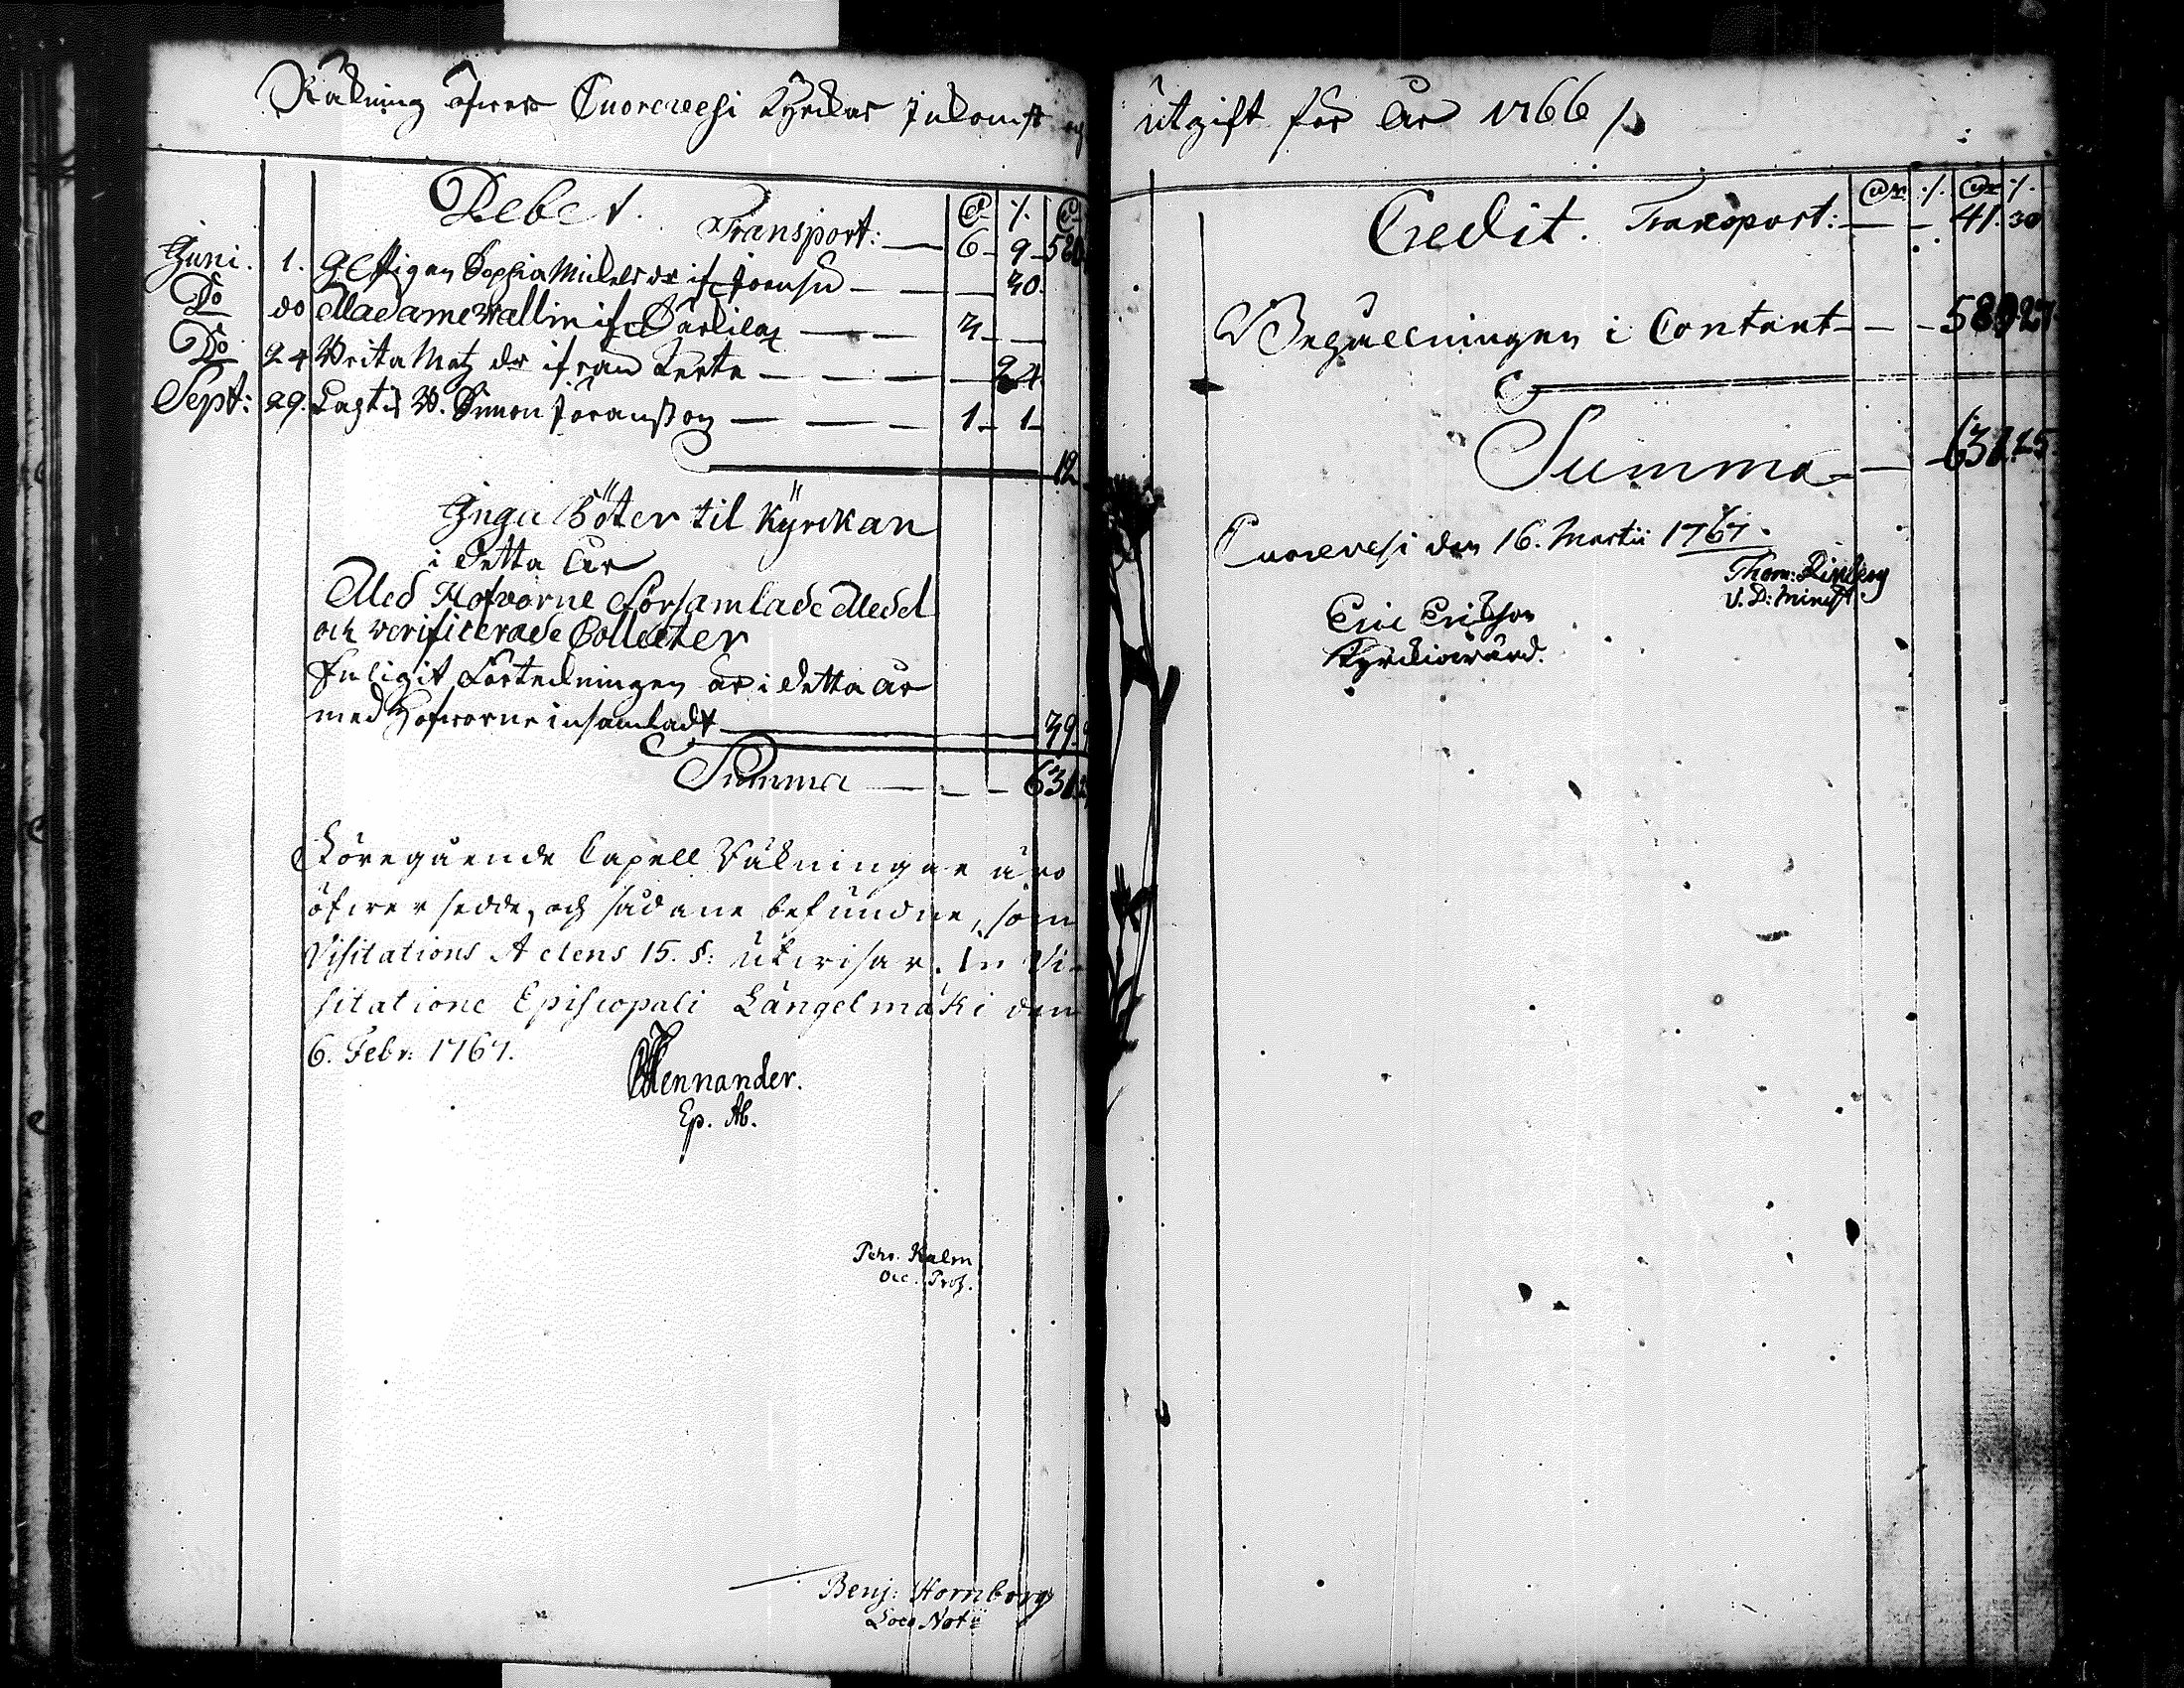 Räkning öfwer Cuorewesi Kyrkas Inkomst og
Debet.
Transport: — 6 — 9 — 580
Juni. 1. Pigan Sophia Michels dr if — — 30.
Do do Madame Wallin if Särkilax — — 3 — —
Do 24 Brita Matz dr ifrån — — — 24
Sept: 29. Simon Joransson — — — 1 — 1 —
12
Inga Böter til Kyrckan
i detta år
Med Hofvorne församlade Medel
och verificerade Collecter
Enligit Förtekningen är i detta år
med Hofvorne insamladt — 39
Summa — — — 631
Föregående Capell Räkningar äro
öfwersedde, och sådane befundne, som
Visitations Actens 15. §: utwisar. In Vi-
sitatione Episcopali Längelmäki den
6. Febr: 1767.
Mennander.
Ep. Ab.
Pehr Kalm
Oec. Prof.
Benj: Hornborg
Loco Notii
utgift för År 1766
Credit. Transport: — — 41. 30
Behållningen i Contant — — 589 27
Summa — — 631.25
Cuorewesi den 16. Martii 1767.
Thom:
V. D: Minist.
Eric Ericsson
Kyrckiowärd.